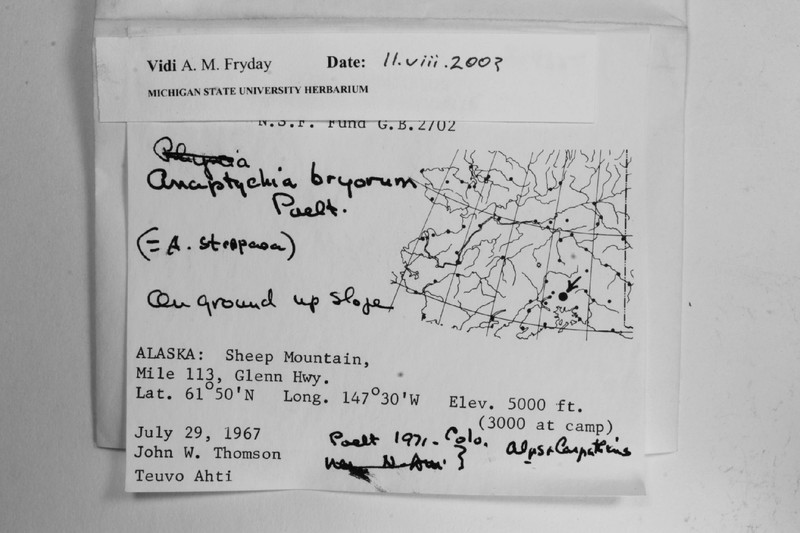 Vidi A. M. Fryday Date: 11.viii.2003
MICHIGAN STATE UNIVERSITY HERBARIUM
N.S.F. Fund G.B.2702
Physcia
Anaptychia bryorum
Poelt.
(= A. stippaea)
On ground up slope
ALASKA: Sheep Mountain,
Mile 113, Glenn Hwy.
Lat. 61°50'N Long. 147°30'W Elev. 5000 ft.
(3000 at camp)
July 29, 1967
John W. Thomson
Teuvo Ahti
Poelt 1971- Colo. Alps & Carpathians
new N. Am. }